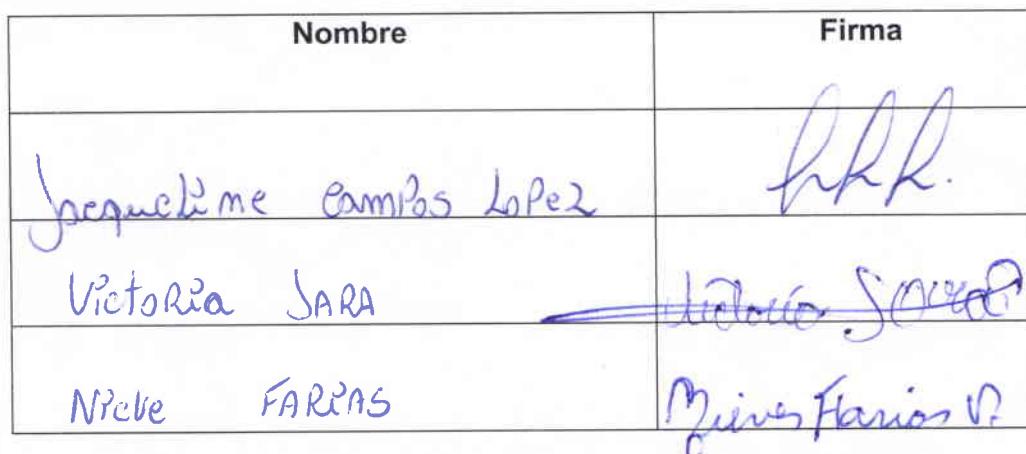 Nombre Firma
Jacqueline Campos Lopez
Victoria JARA Victoria Jara
Nieve FARIAS Nieves Farias V.